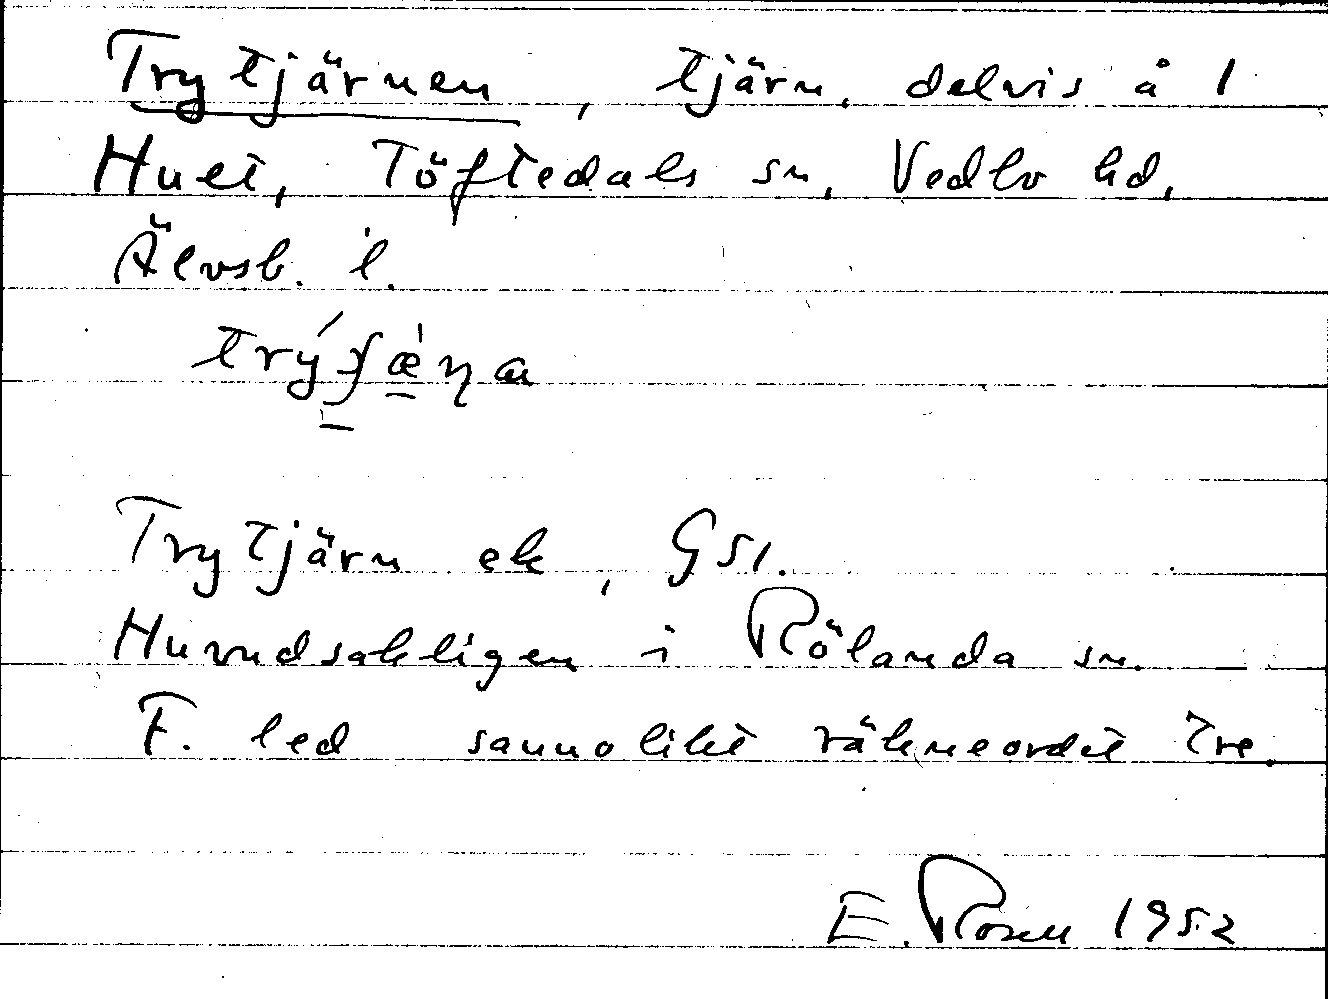 Trytjärnen, tjärn, delvis å 1
Huet, Töftedals sn, Vedbo hd,
Älvsb. l.
Trytjärn ek, GSI.
Huvudsakligen i Rölanda sn.
F. led sannolikt räkneordet tre.
E. Rosell 1952